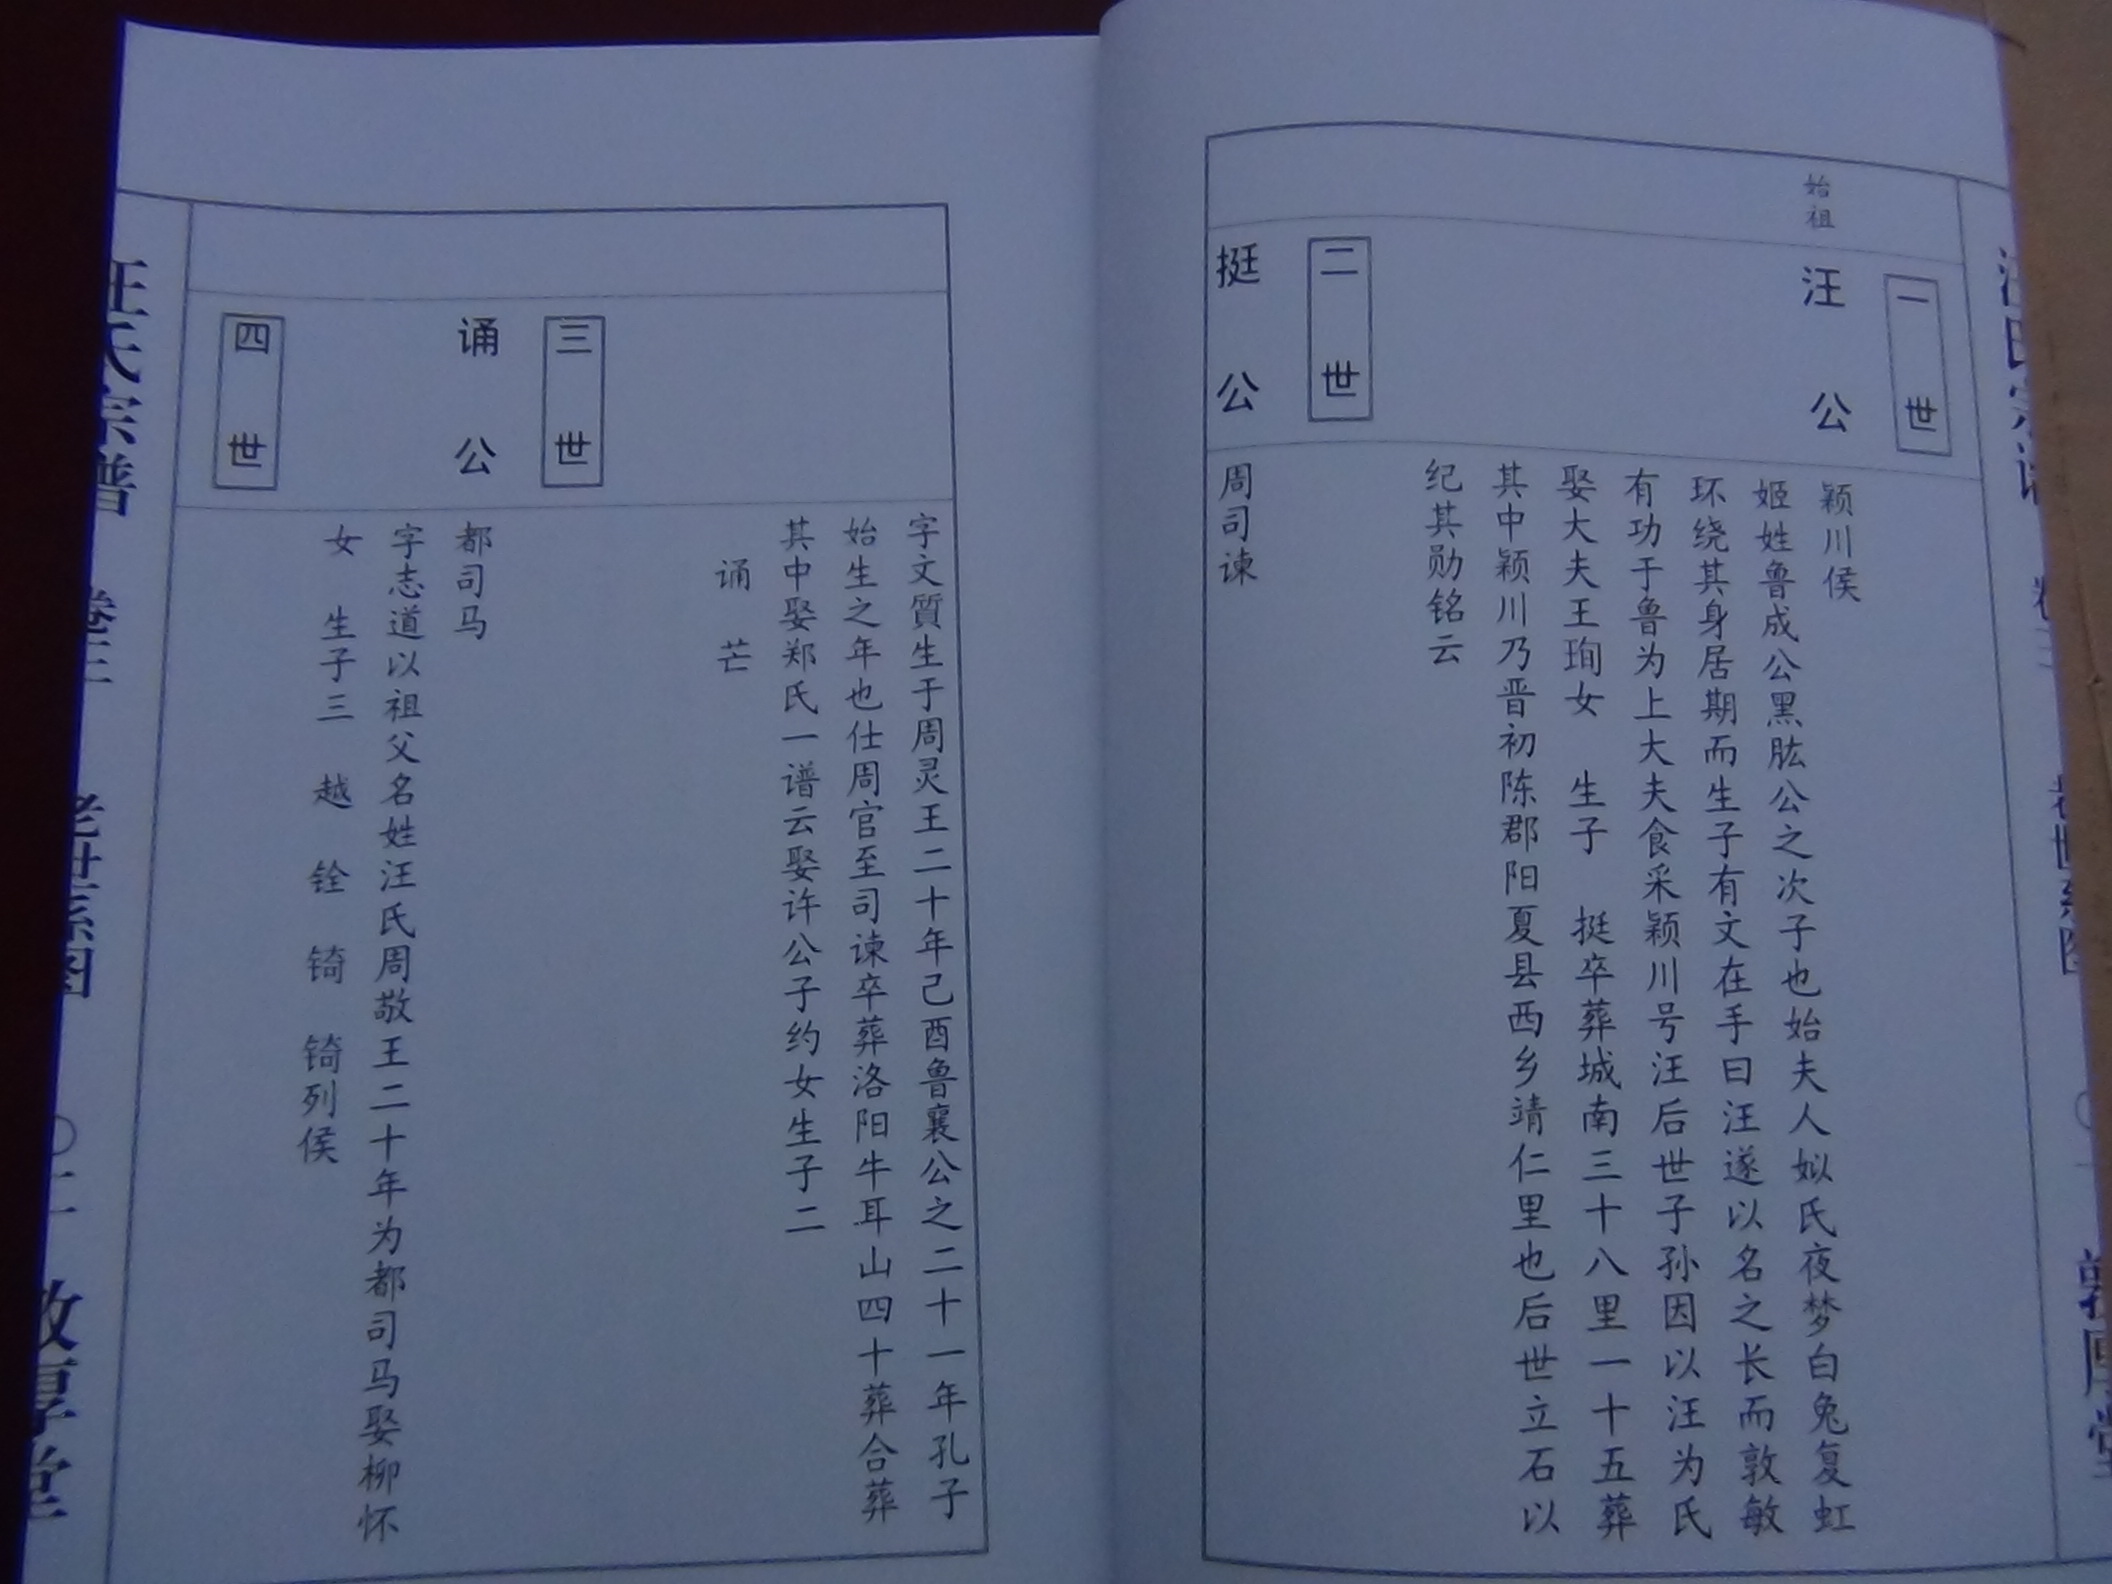 始祖
一世
汪公
颖川侯
姬姓鲁成公黑肱公之次子也始夫人姒氏夜梦白兔复虹
环绕其身居期而生子有文在手曰汪遂以名之长而敦敏
有功于鲁为上大夫食采颖川号汪后世子孙因以汪为氏
娶大夫王珣女 生子 挺卒葬城南三十八里一十五葬
其中颖川乃晋初陈郡阳夏县西乡靖仁里也后世立石以
纪其勋铭云
二世
挺公
周司谏
字文質生于周灵王二十年己酉鲁襄公之二十一年孔子
始生之年也仕周官至司谏卒葬洛阳牛耳山四十葬合葬
其中娶郑氏一谱云娶许公子约女生子二
诵 芒
三世
诵公
都司马
字志道以祖父名姓汪氏周敬王二十年为都司马娶柳怀
女 生子三 越 铨 锜 锜列侯
四世
汪氏宗谱 卷三 老世系图 敦厚堂